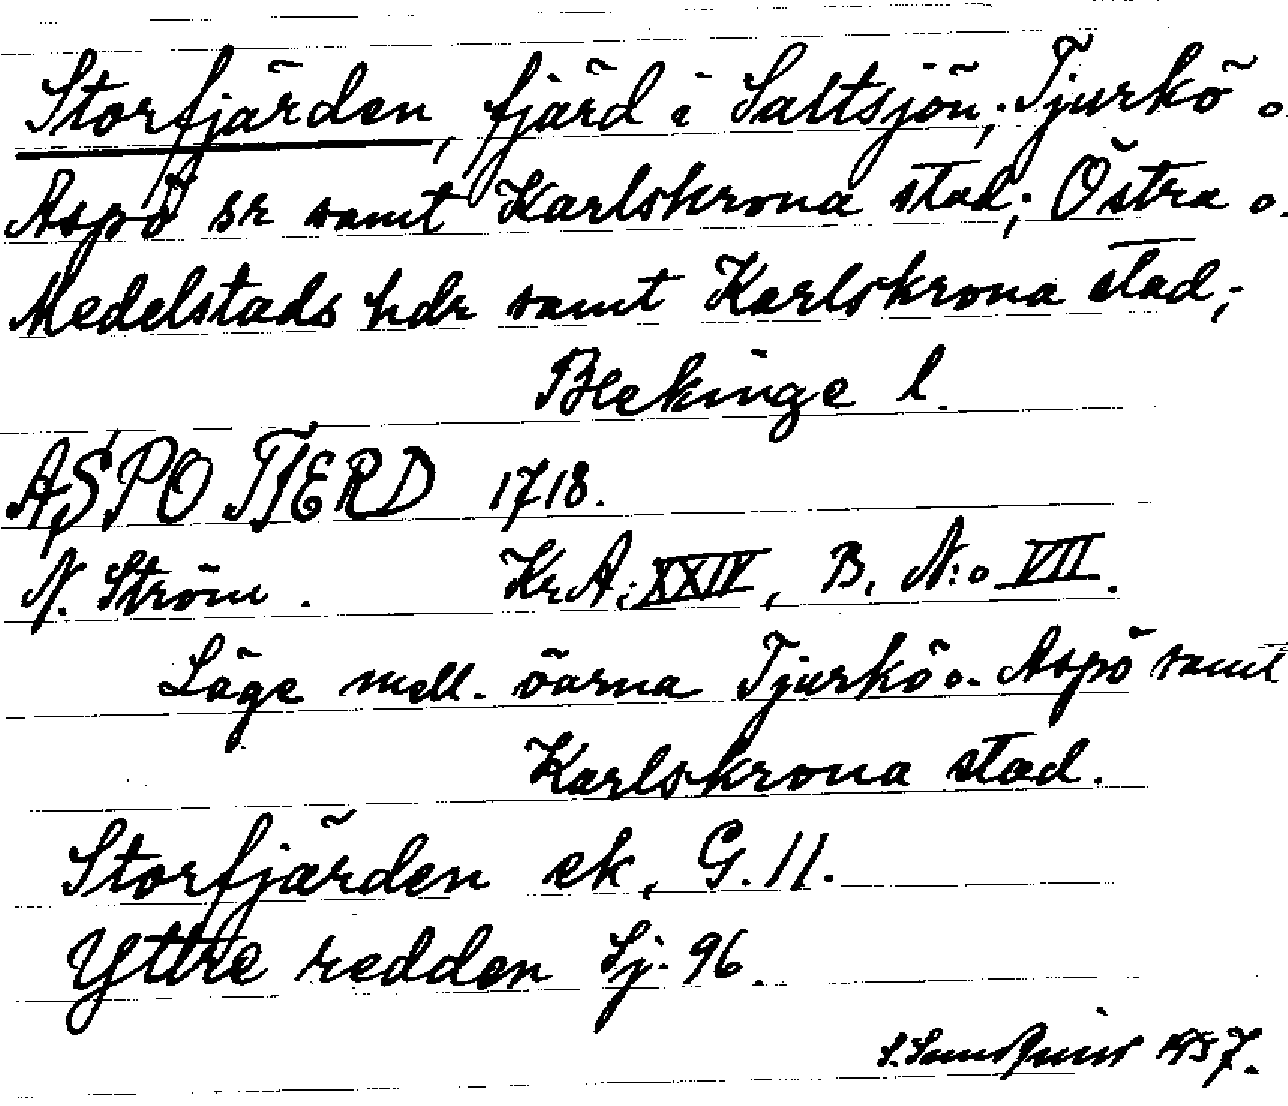 Storfjärden, fjärd i Saltsjön; Tjurkö o.
Aspö sr samt Karlskrona stad; Östra o.
Medelstads hdr samt Karlskrona stad;
Blekinge l.
ASPO FJERD 1718.
N. Ström. Kr.A: XXIV, B. N:o VII.
Läge mell. öarna Tjurkö o. Aspö samt
Karlskrona stad.
Storfjärden ek, G. 11.
Yttre redden Sj. 96.
1957.